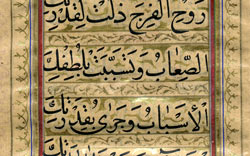 رَوْحَ الْفَرَجِ ذَلَّتْ لِقُدْرَتِكَ
الصِّعَابُ وَتَسَبَّبَتْ بِلُطْفِكَ
الْأَسْبَابُ وَجَرَىٰ بِقُدْرَتِكَ